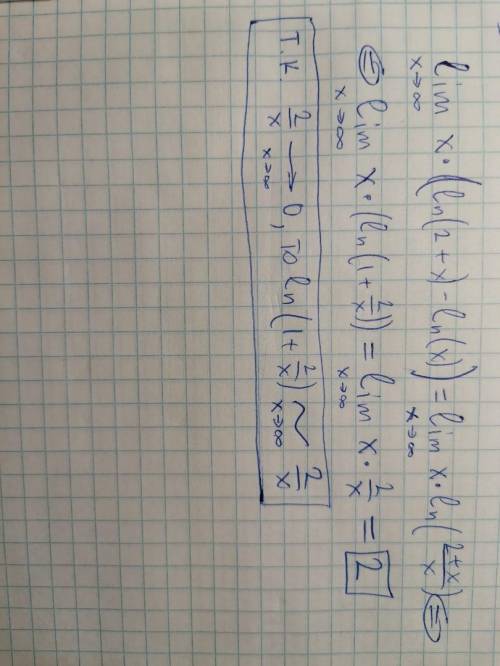 lim x→∞ x·(ln(2+x)-ln(x)) = lim x→∞ x·ln((2+x)/x) ⊜
⊜ lim x→∞ x·(ln(1+2/x)) = lim x→∞ x·2/x = 2
Т.к. 2/x → x→∞ 0, то ln(1+2/x) ~ x→∞ 2/x